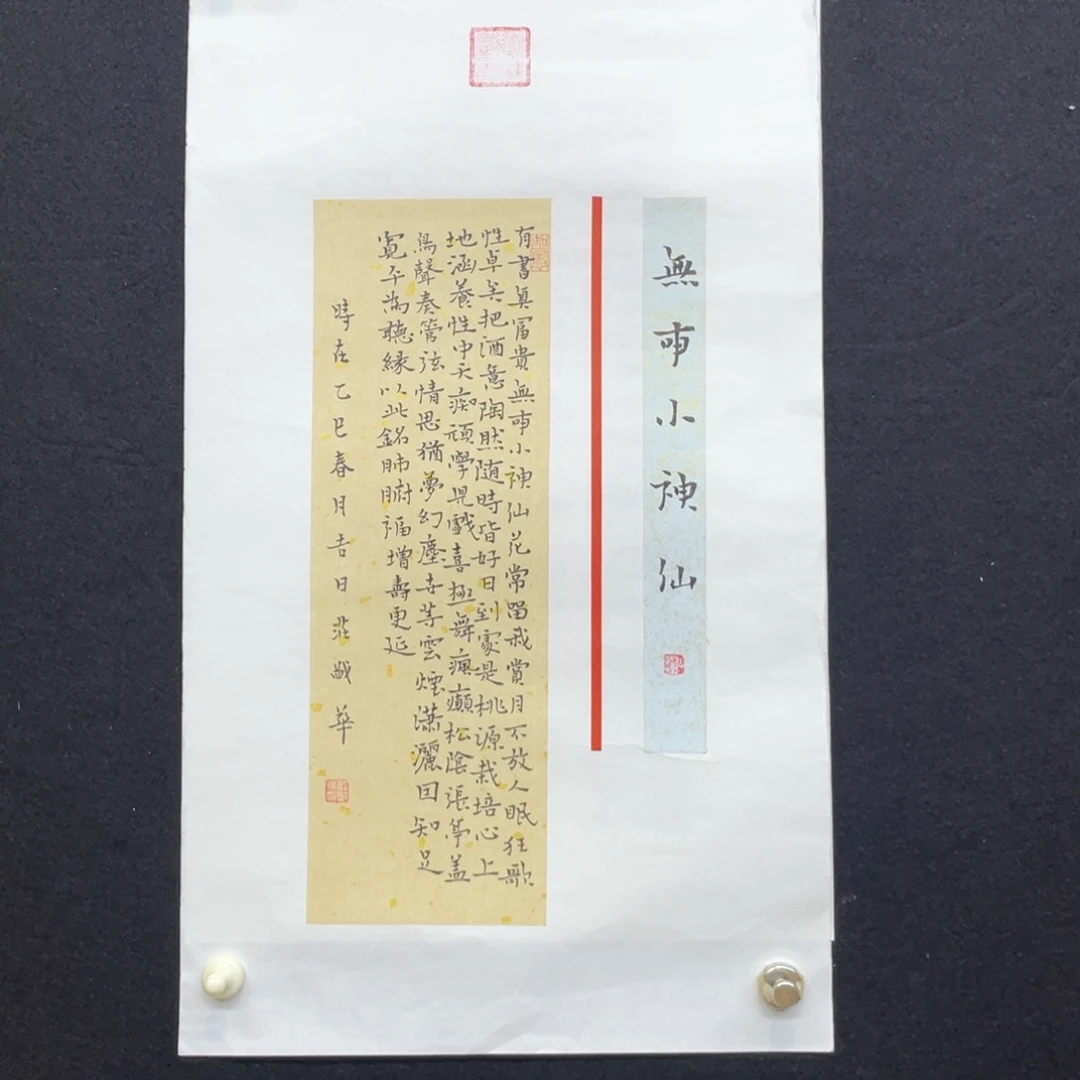 無事小神仙
有書真富貴無事小神仙花常留我賞月不放人眠狂歌
性卓矣把酒意陶然随時皆好日到處是桃源栽培心上
地涵養性中天痴頑學児戲喜極舞瘋癲松陰張亭盖
鳥聲奏管弦情思猶夢幻塵世等雲煙潇灑回知足
寬平為聽緣以此銘肺腑福增壽更延
時在乙巳春月吉日 華